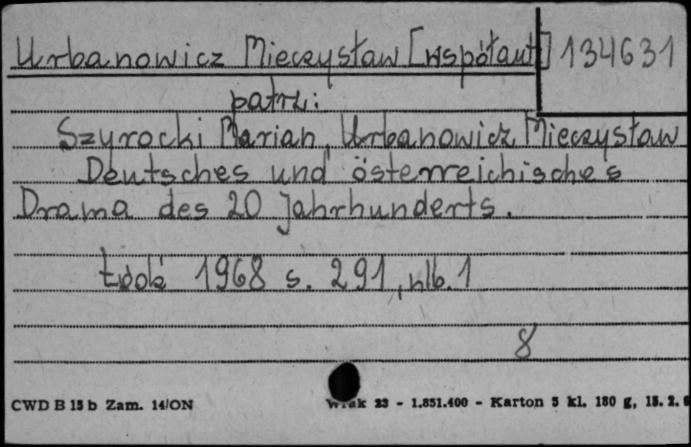 Urbanowicz Mieczysław [współaut] 134631
patrz:
Szyrocki Marian, Urbanowicz Mieczysław
Deutsches und österreichisches
Drama des 20 Jahrhunderts.
Łódź 1968 s. 291, nlb. 1
8
CWD B 15 b Zam. 14/ON 23 - 1.851.400 - Karton 5 kl. 180 g,